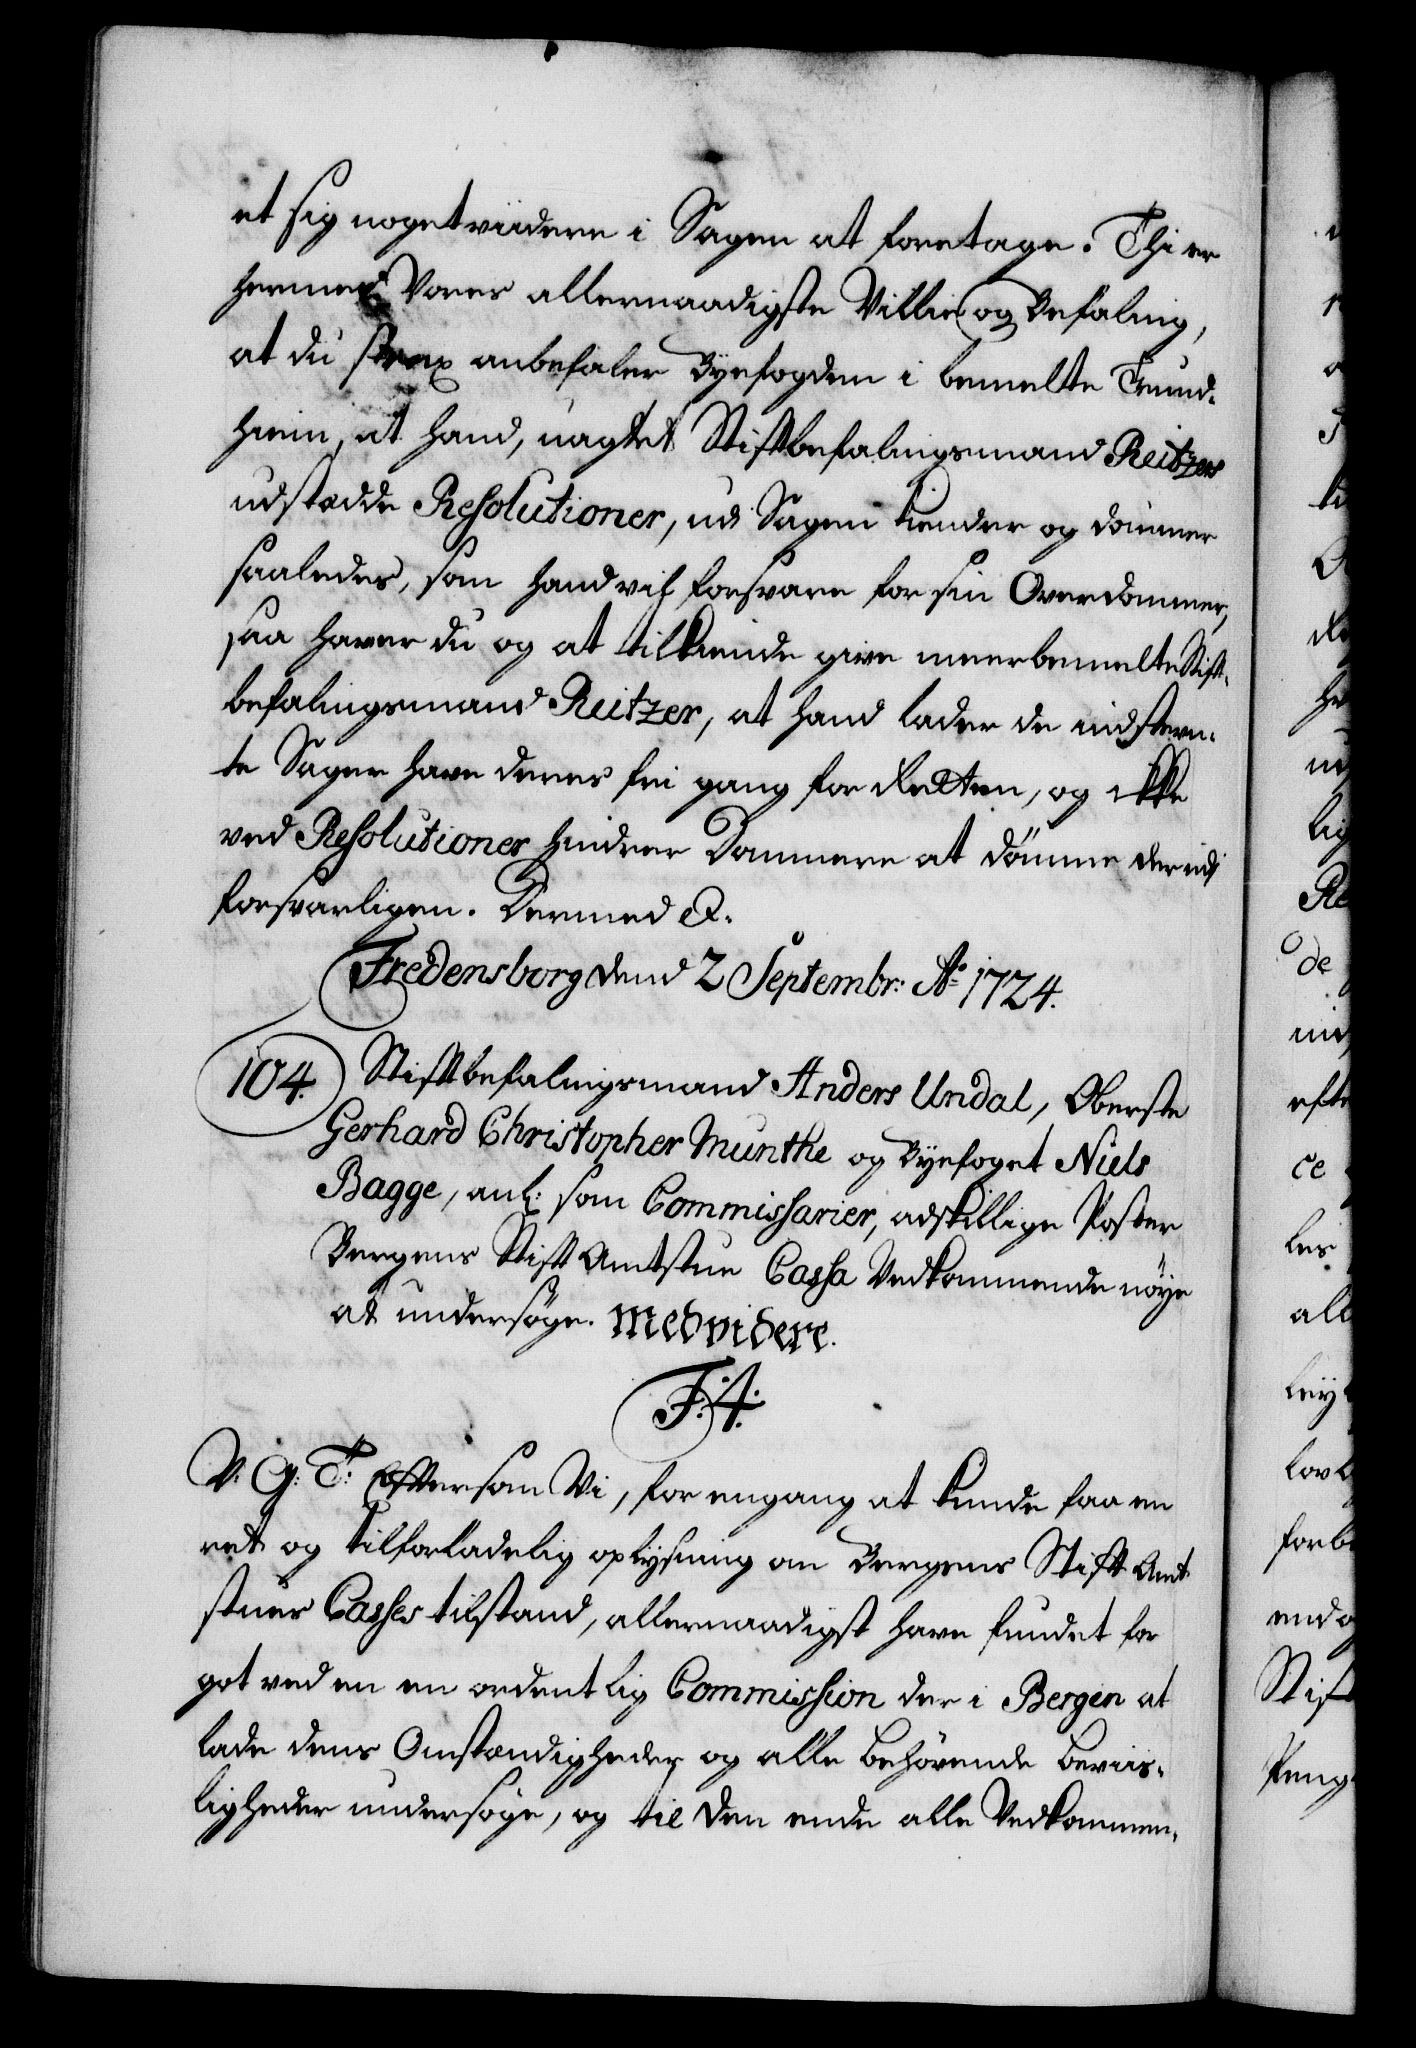 et sig noget viidere i Sagen at foretage. Thi er
hermed Vores allernaadigste Villie og Befaling,
at du strax anbefaler Byefogden i bemelte Trund-
hiem, at hand, uagtet Stiftbefalingsmand Reitzers
udstædde Resolutioner, udi Sagen kiender og dømmer
saaledes, som hand vil forsvare for sin Overdommer,
saa haver du og at tilkiende give meerbemelte Stift-
befalingsmand Reitzer, at hand lader de indstevn-
te Sager have deres frie gang for Retten, og ikke
ved Resolutioner hindrer Dommere at dømme der udi
forsvarligen. Dermed &.
Fredensborg dend 2 Septembr: Ao 1724.
104. Stiftbefalingsmand Anders Undal, Oberste
Gerhard Christopher Munthe og Byefoget Niels
Bagge, anl: som Commissarier, adskillige Poster
Bergens Stift Amtstue Cassa Vedkommende nøye
at undersøge. Medvidere.
F: 4:
V. G. T: Eftersom Vi, for engang at kunde faa en
ret og tilforladelig oplysning om Bergens Stift Amt
stues Casses tilstand, allernaadigst have fundet for
got ved en en ordentlig Commission der i Bergen at
lade dens Omstændigheder og alle behørende beviis-
ligheder undersøge, og til den ende alle Vedkommen-